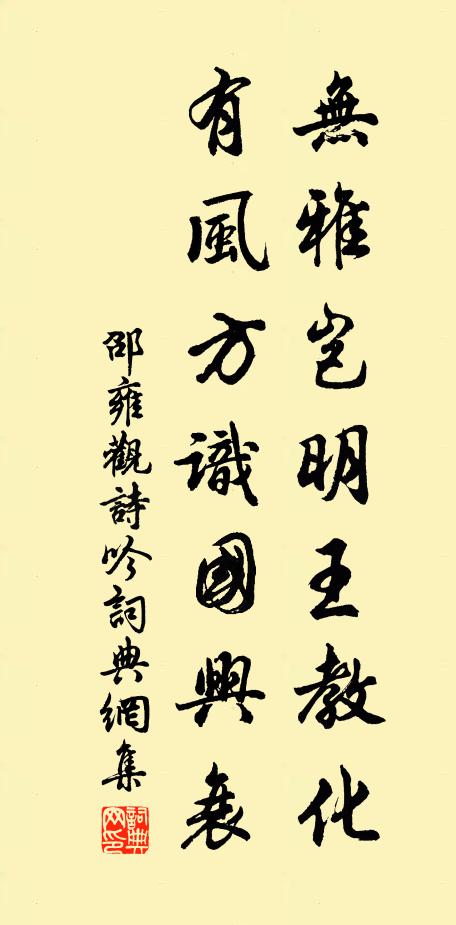 無雅豈明王教化
有風方識國興衰
邵雍觀詩吟詞典網集
詞典網印